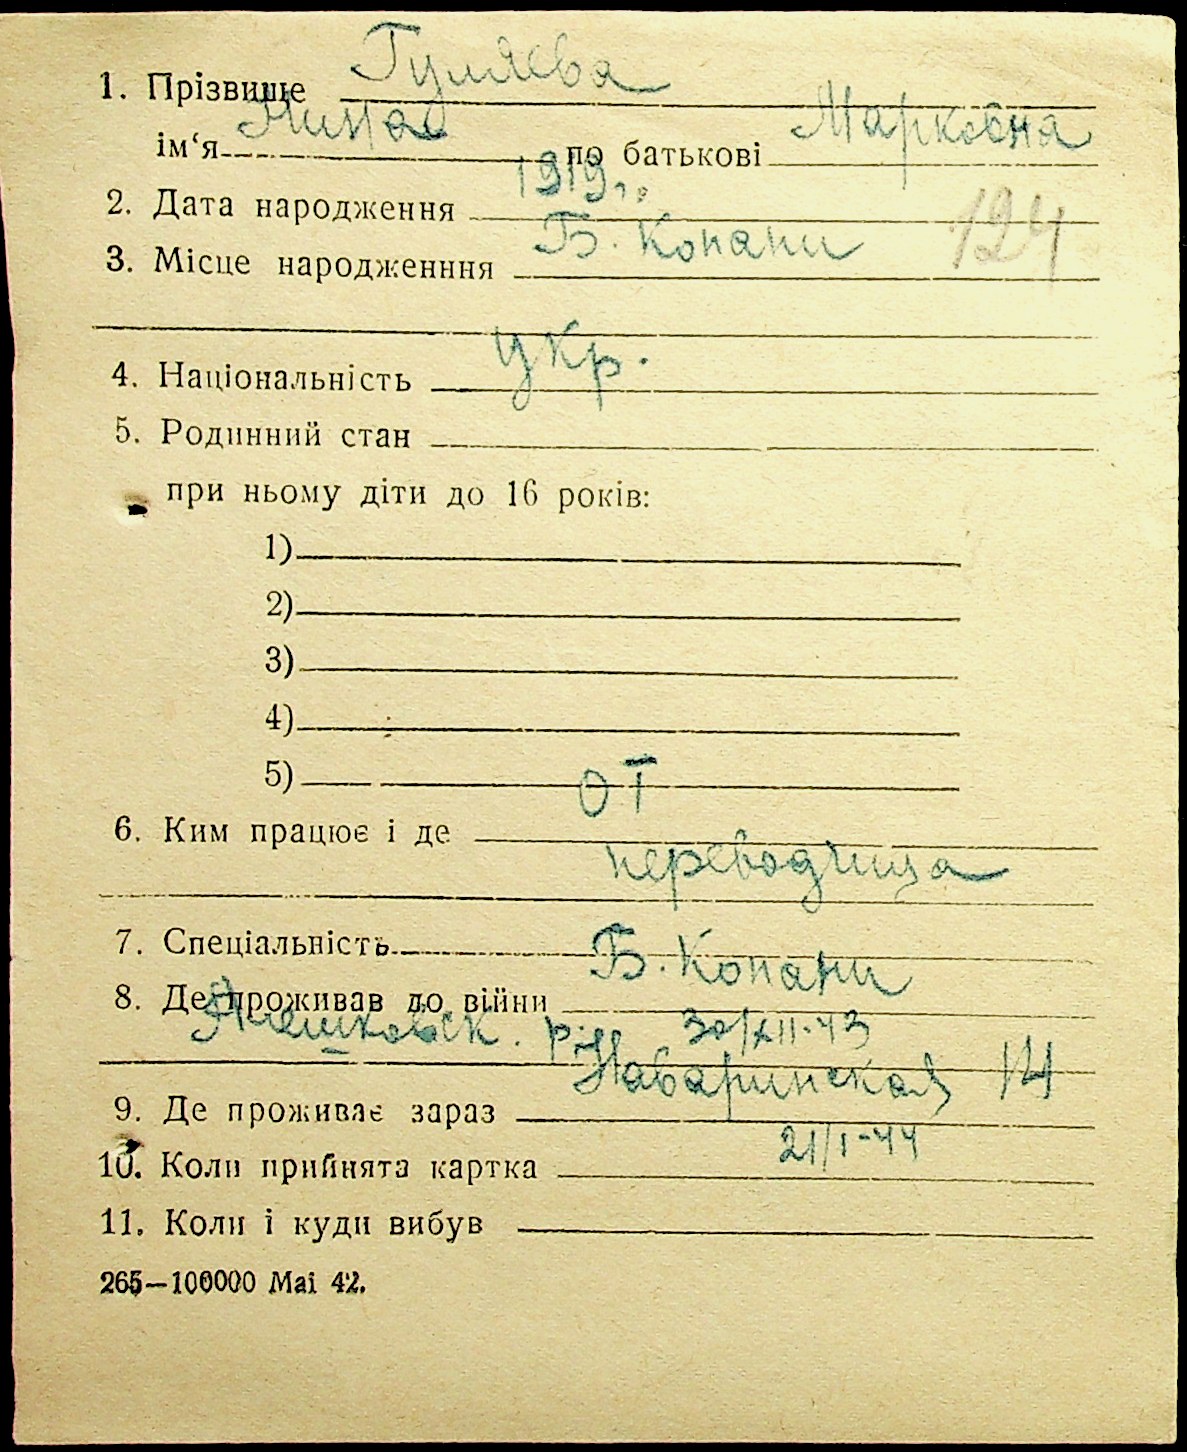 1. Прізвище Гуляева
ім‘я Нина по батькові Марковна
2. Дата народження 1919 г.
3. Місце народженння Б. Копани
124
4. Національність укр.
5. Родинний стан
при ньому діти до 16 років:
1)
2)
3)
4)
5)
6. Ким працює і де ОТ
переводчица
7. Спеціальність
8. Де проживав до війни Б. Копани
р. 30/XII-43
9. Де проживає зараз Наваринская 14
10. Коли прийнята картка 21/I-44
11. Коли і куди вибув
265—100000 Mai 42.